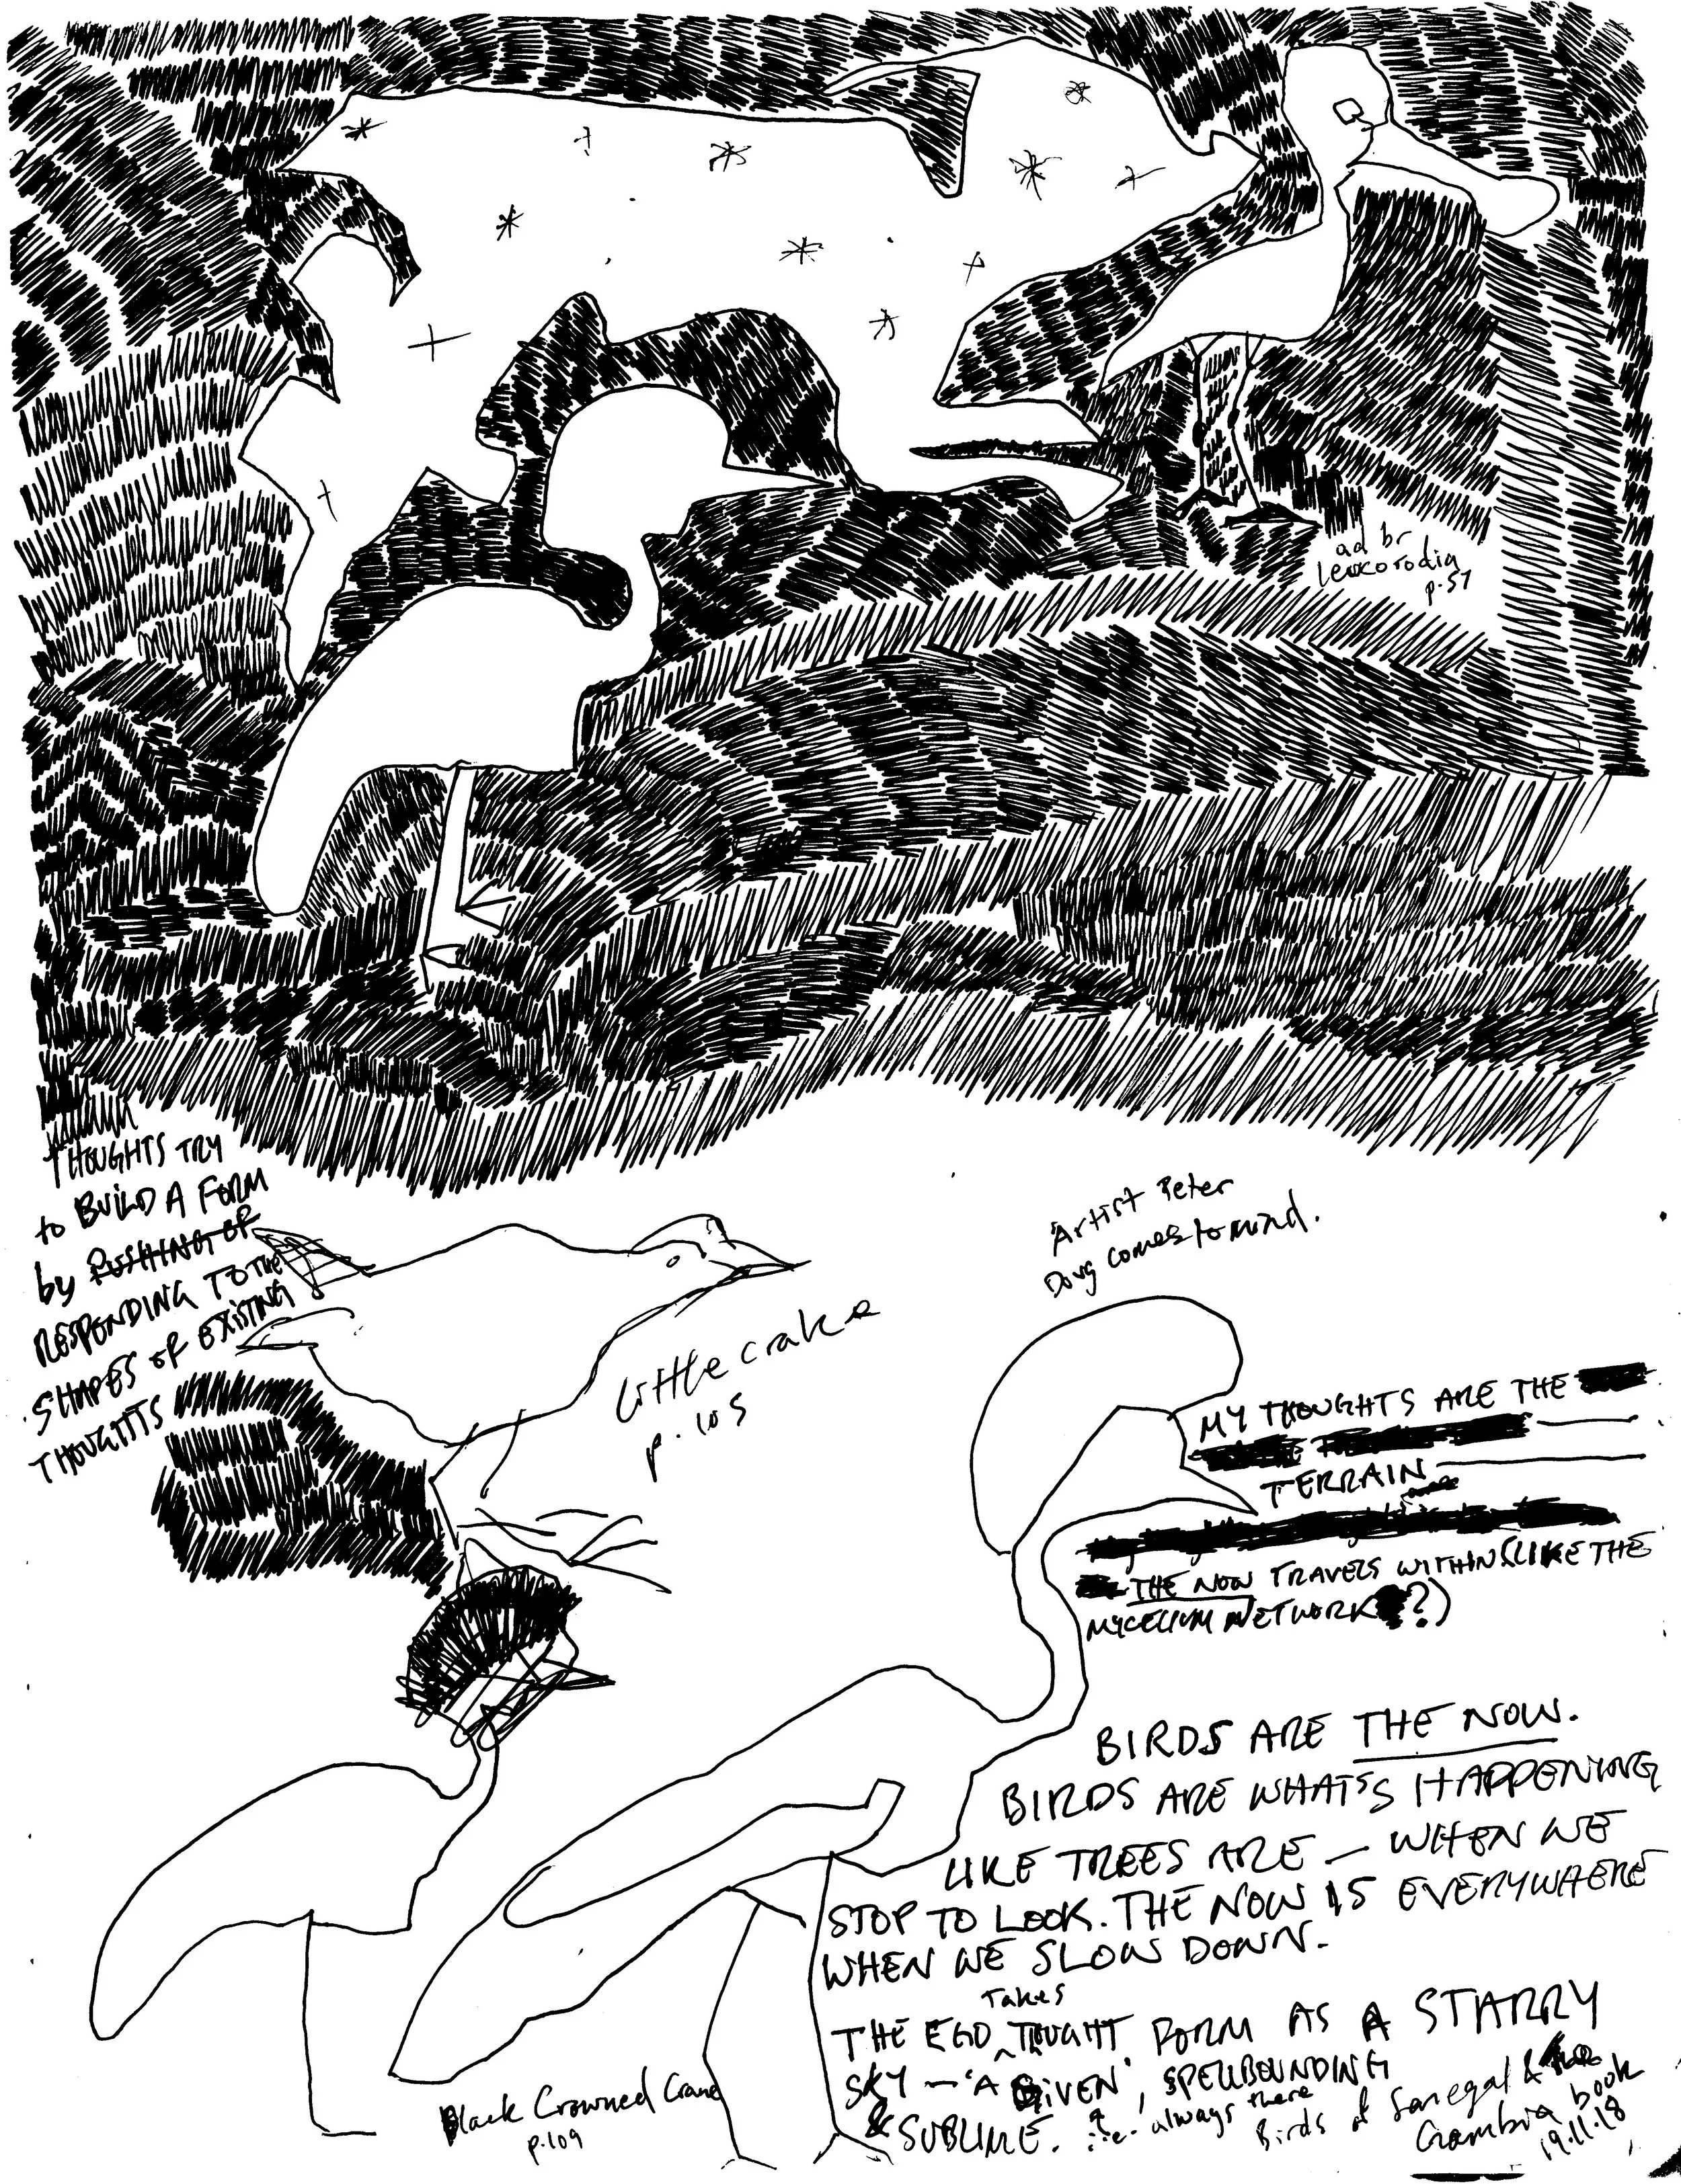 ad br
leucorodia
p.57
THOUGHTS TRY
to BUILD A FORM
by PUSHING OF
RESPONDING TO THE
SHAPES OF EXISTING
THOUGHTS
Artist Peter
Doug comes to mind.
Little crake
p.105
MY THOUGHTS ARE THE
TERRAIN
THE NOW TRAVELS WITHIN (LIKE THE
MYCELIUM NETWORK?)
BIRDS ARE THE NOW.
BIRDS ARE WHAT'S HAPPENING
LIKE TREES ARE — WHEN WE
STOP TO LOOK. THE NOW IS EVERYWHERE
WHEN WE SLOW DOWN.
Takes
THE EGO THOUGHT FORM AS A STARRY
SKY — 'A GIVEN', SPELLBOUNDING
& SUBLIME. i.e. always there
Birds of Senegal & the
Gambia book
19.11.18
Black Crowned Crane
p.109